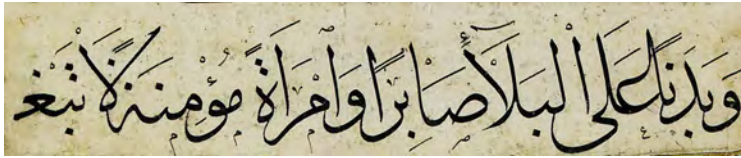 وَبَدَنًا عَلَى الْبَلَآءِ صَابِرًا وَامْرَأَةً مُؤْمِنَةً لَا تَبْغِ